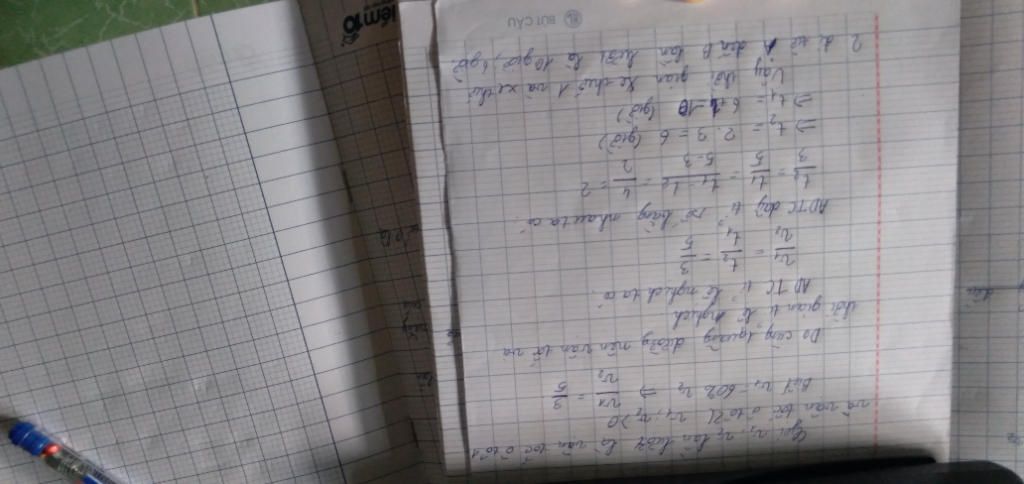 Gọi v₁, v₂ lần lượt là vận tốc ô tô 1
và vận tốc ô tô 2 v₁, v₂ > 0
Biết v₁ = 60% v₂ ⇒ v₁/v₂ = 3/5
Do cùng quãng đường nên vận tốc và
thời gian tỉ lệ nghịch
ADTC tỉ lệ nghịch ta có:
v₁/v₂ = t₂/t₁ = 3/5
ADTC dãy tỉ số bằng nhau ta có:
t₂/3 = t₁/5 = (t₁ - t₂)/(5-3) = 4/2 = 2
⇒ t₂ = 2.3 = 6 (giờ)
⇒ t₁ = 6+ = 10 (giờ)
Vậy thời gian xe thứ 1 và xe thứ
2 đi từ A đến B lần lượt là 10 giờ, 6 giờ.
BÚT CÂU
Điểm 10